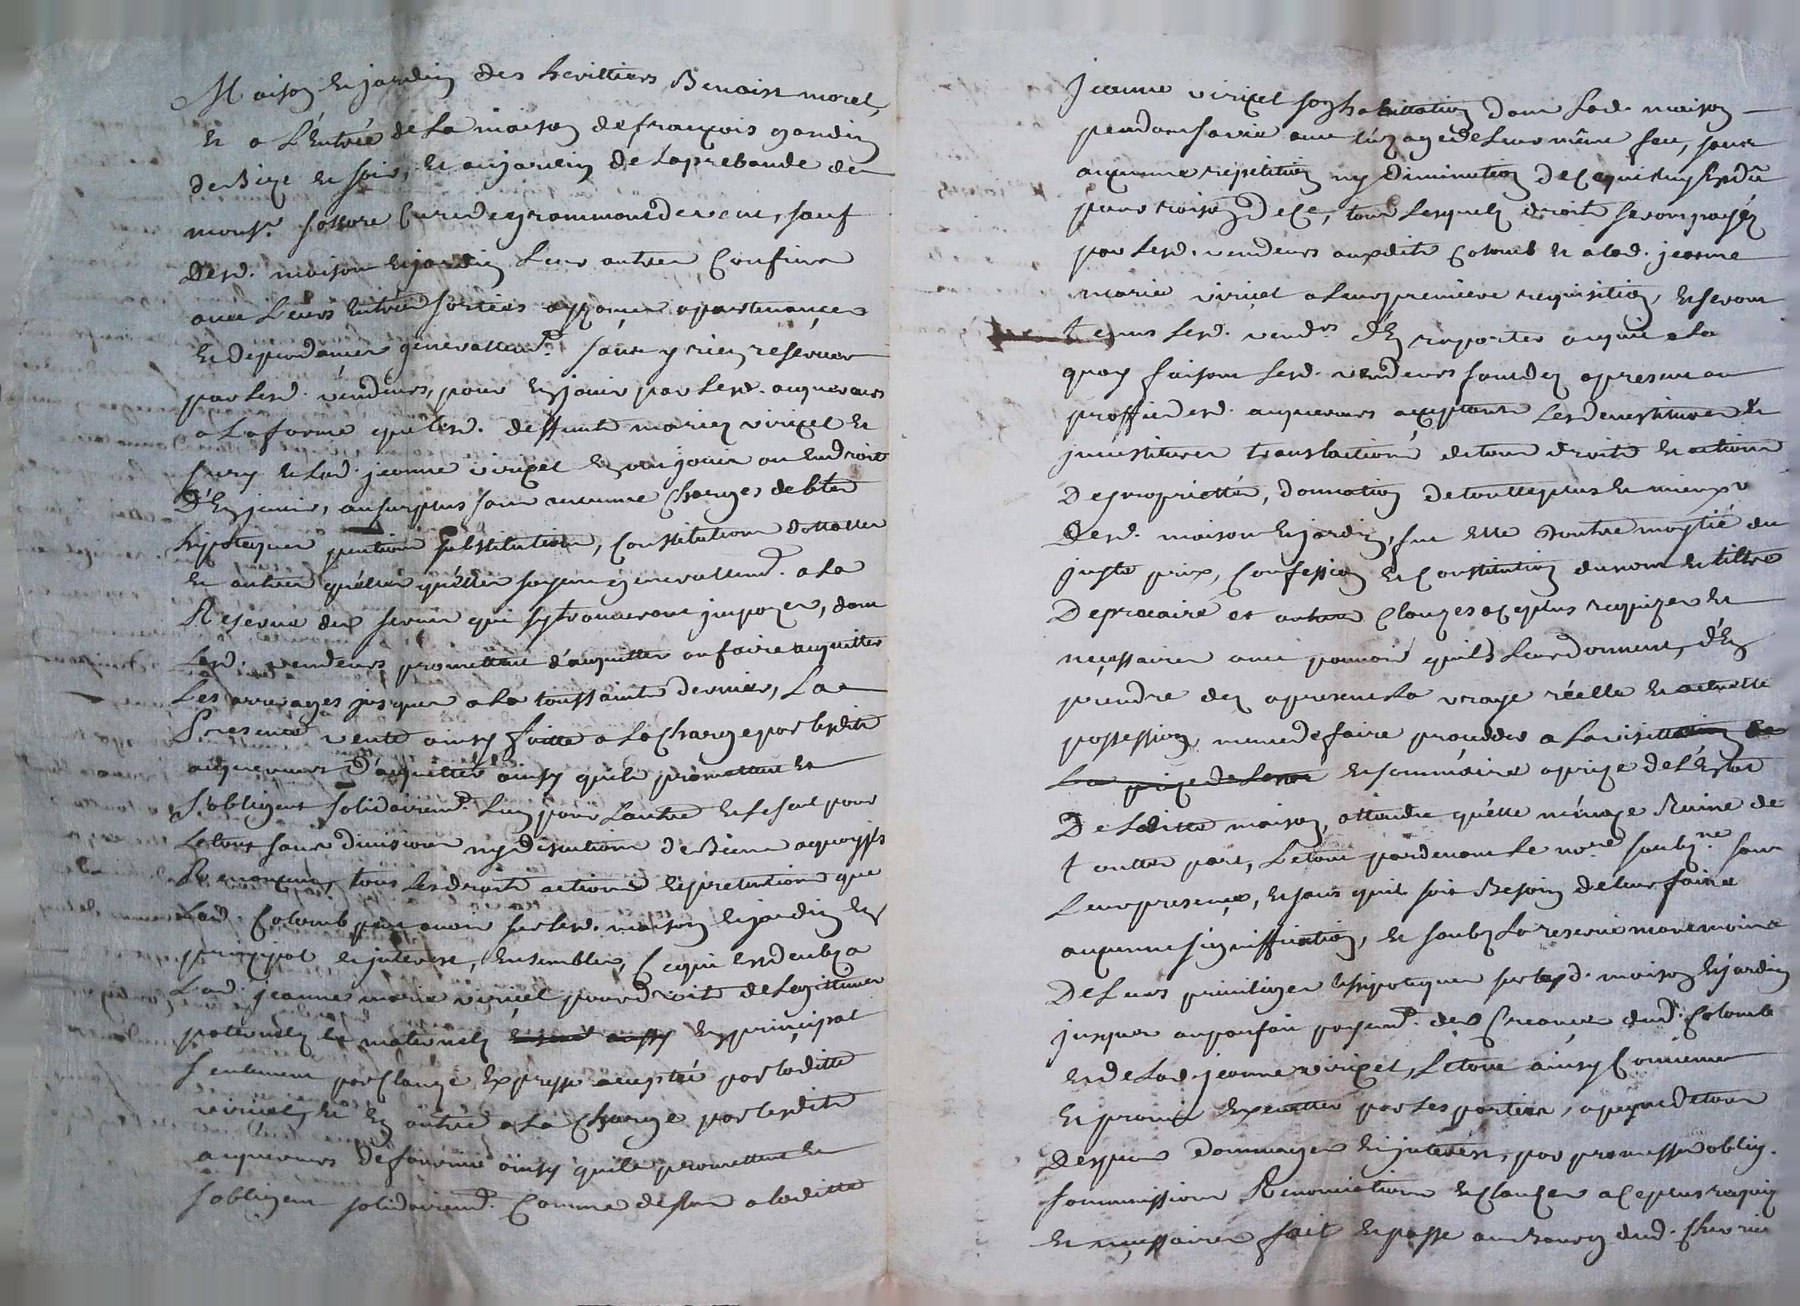 Maison & jardin des heritiers Benoist morel,
Et a L'Entrée de La maison de françois gardin
de Bize et soir, Et au jardin de La prebande de
monsr. curé de grammond de vent, sauf
Desd. maison & jardin Leurs autres Confins
avec Leurs Entrées sorties appartenances
Et dependances generallemt. sans y rien reserver
par Lesd. vendeurs, pour En jouir par Lesd. acquereurs
a La forme que Lesd. deffunts viricel Et
Et Lad. jeanne viricel En ou jouir ou En droit
D'En jouir, au surplus sans aucunne Charges debtes
hypoteques substitutions, Constitutions dottalles
Et autres qu'elles qu'elles soyent generallemt. a La
Reserve des servis qui s'y trouveront imposes, dont
Lesd. vendeurs promettent d'acquitter ou faire acquitter
Les arrerages jusques a La toussaints dernier, La
Presente vente ainsy faitte a La Charge par lesdits
acquereurs D'acquitter ainsy qu'ils promettent Et
s'obligent solidairemt. L'un pour L'autre Et Le seul pour
Le tout sans division ny discution de Biens
tous Les droits actions Et pretentions que
Lad. Colomb peut avoir sur Lesd. maison Et jardin En
principal Et interest, Ensembles, Ce qui Est deub a
Lad. jeanne marie viricel pour droits de Legittimes
paternels Et maternels En principal
seulement par Clauze Expresse acceptée par laditte
viricel, Et En outre a La Charge par lesdits
acquereurs de fournir ainsy qu'ils promettent Et
s'obligent solidairemt. Comme dessus a laditte
jeanne viricel son habitation dans Lad. maison
pendant sa vie avec L'uzage de Leur même feu, sans
aucunne repetition ny diminution de Ce qui Luy Est dû
pour raison de Ce, tous Lesquels droits seront payés
par Lesd. vendeurs auxdits Colomb Et a Lad. jeanne
marie viricel a Leur premiere requisition, Et seront
tenus Lesd. vendrs. d'En raporter acquit a La
quoy faisant Lesd. vendeurs sont des a present au
proffit desd. acquereurs acceptants Les devestitures Et
investitures translations de tous droits Et actions
De proprietté, donnation de toutte plus Et mieux v
Desd. maison Et jardin, fut Elle d'outre moytié du
juste prix, Confession Et Constitution du nom Et tiltre
De precaire et autres Clauzes a Ce plus requizes Et
necessaires avec pouvoir qu'ils Leur donnent, d'En
prendre des a present La vraye réelle Et actuelle
possession, meme de faire proceder a La visittation
La prize de Lesta Et sommaire a prize de L'Estat
De Laditte maison, attendu qu'elle ménage Ruine de
touttes part, Le tout pardevant Le nore. soubzne. sans
Leur presence, Et sans qu'il soit Besoin de Leur faire
aucunne signiffication, Et soubz La reserve
De Leurs privileges Et hipoteques sur Lesd. maison Et jardin
jusques au parfait payemt. des Creances dud. Colomb
Et de Lad. jeanne viricel, Le tout ainsy Convenu
Et promis Executter par Les parties, a peyne de tous
Despens Dommages Et interest, par promesses oblig.
sommissions Renonciations Et Clauses a Ce plus requis
Et necessaires fait Et passé au Bourg dud. Chevrie